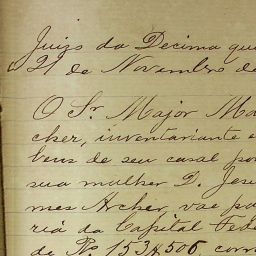 Juizo da Decima qu
21 de Novembro de
O Sr. Major Ma
cher, inventariante e
bens de seu casal po
sua mulher D. Jesu
mes Archer, vae pa
ria da Capital Fede
de Rs. 153$506, corr